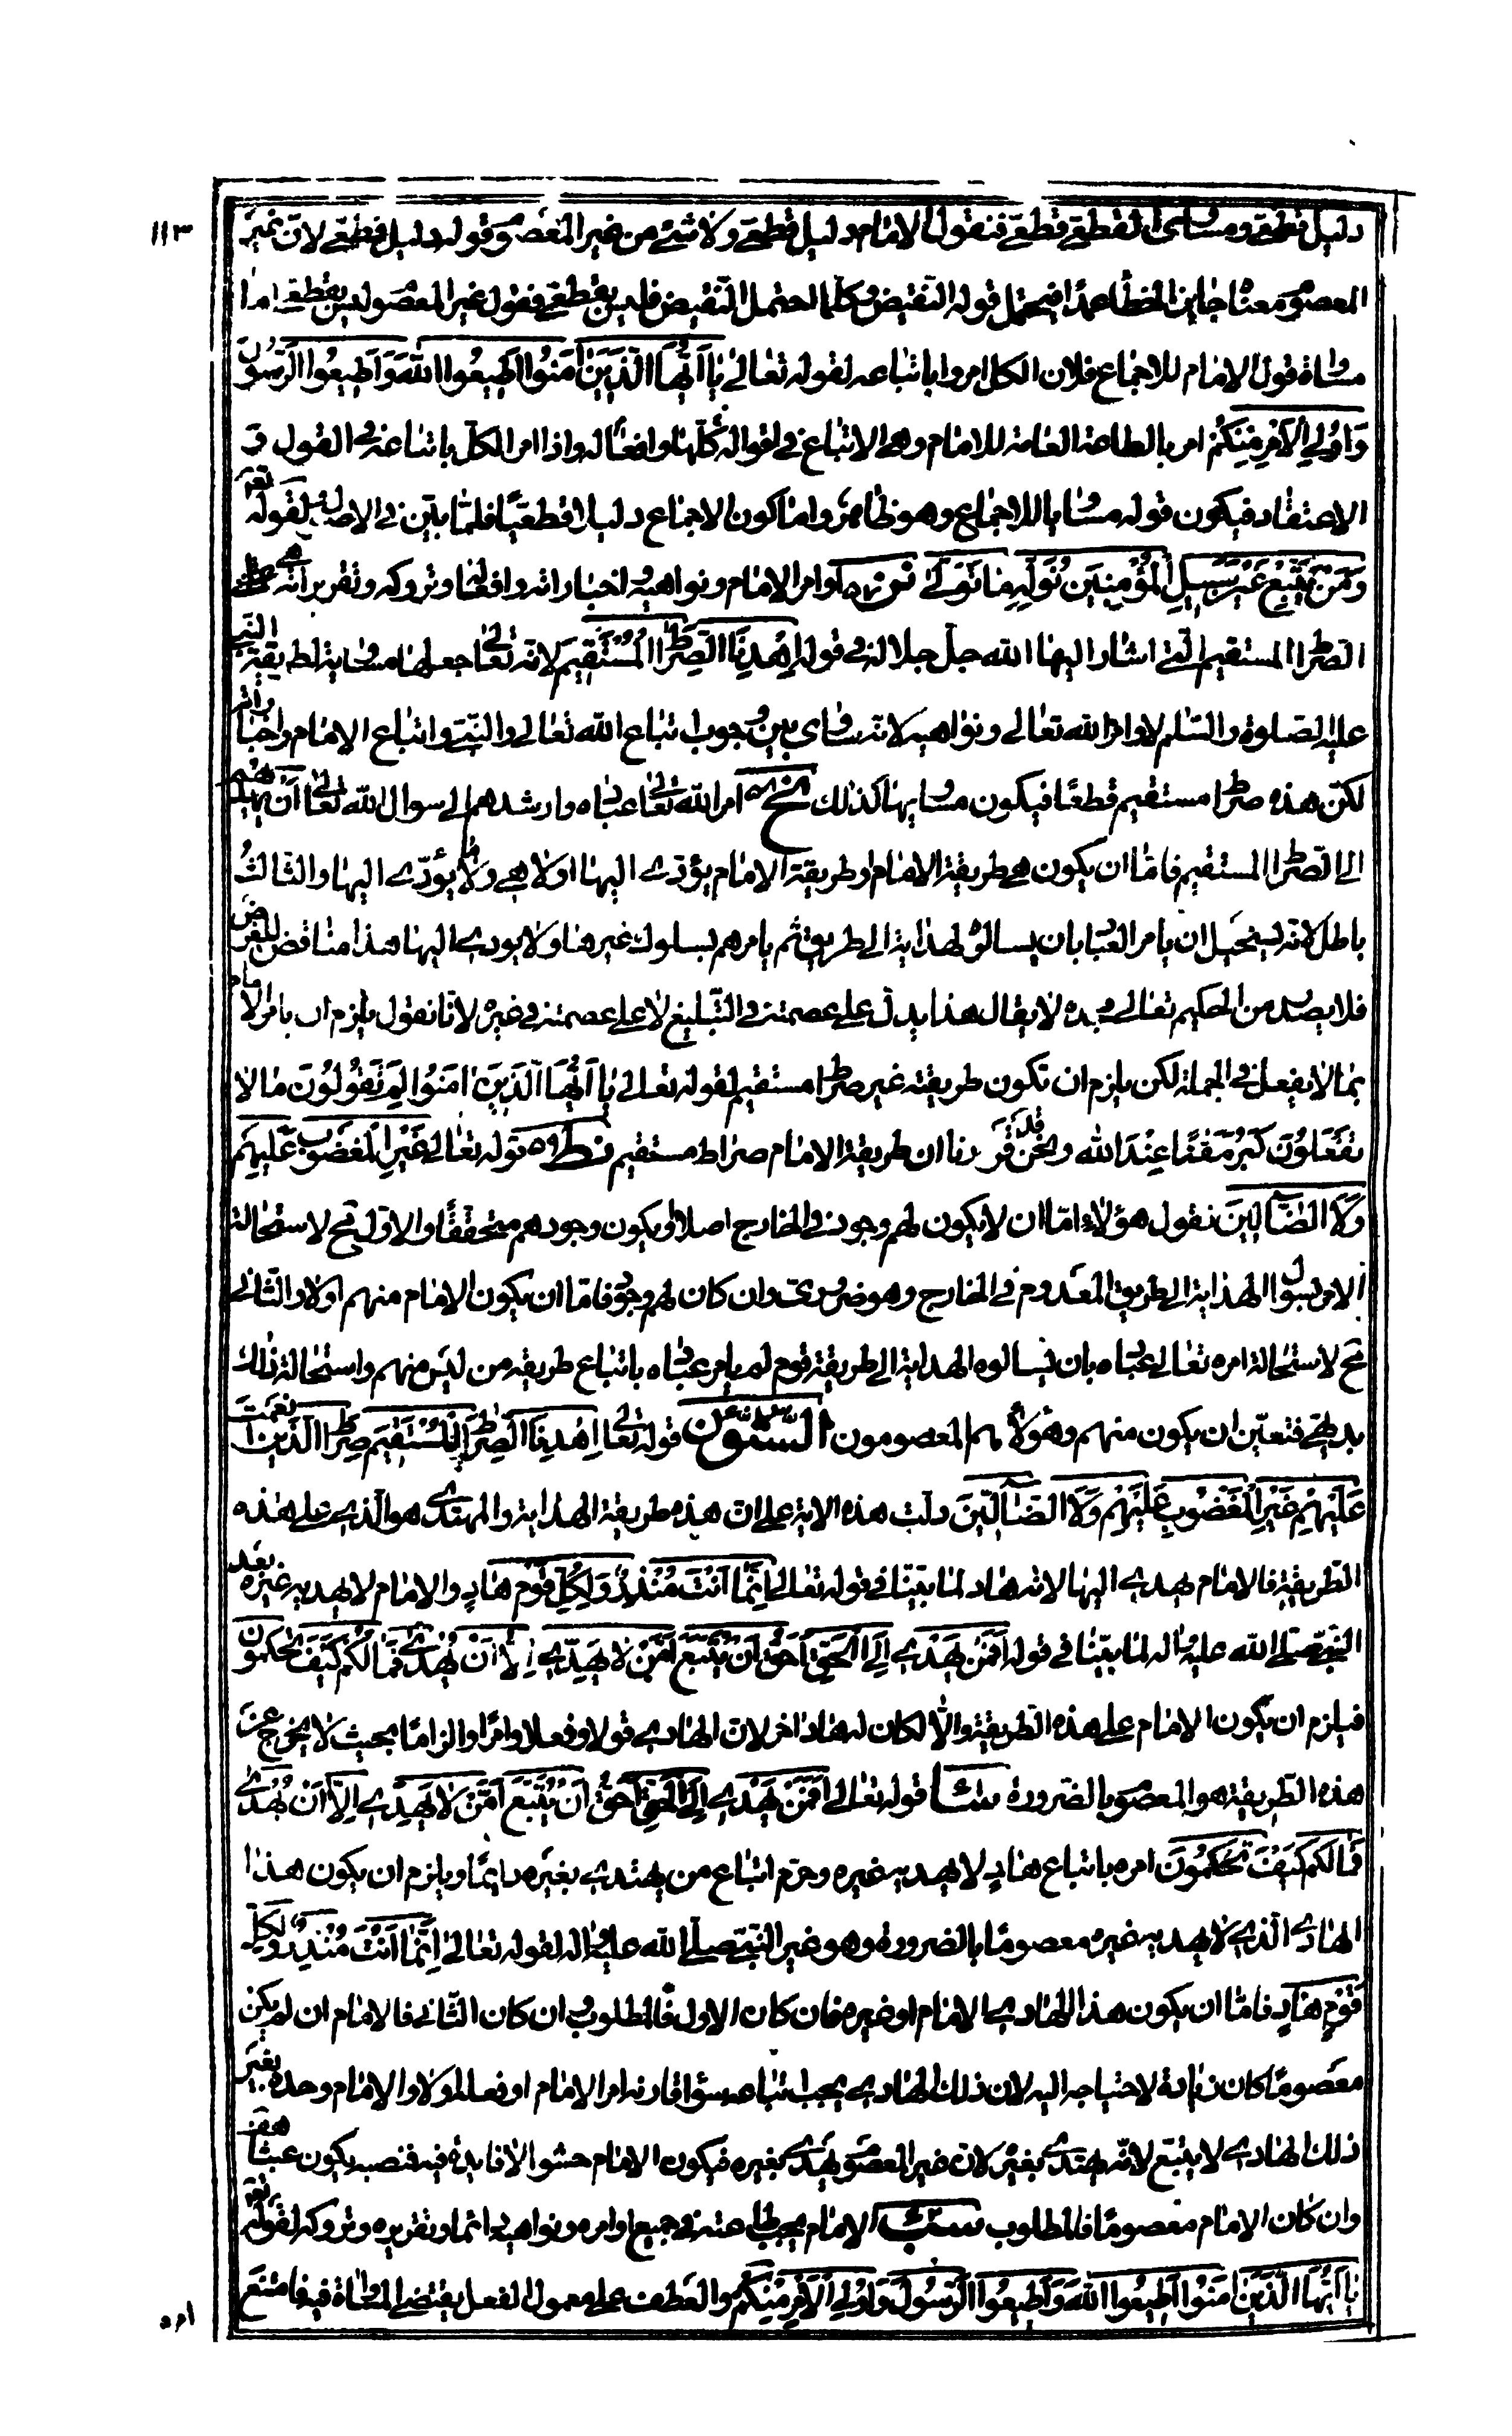 ١١٣
دليل قطعي ومساوى القطعي قطعي فنقول الامام دليل قطعي ولا شئ من غير المعصوم وقوله دليل قطعي لان غير
المعصوم معناه جايز الخطأ عمدا فيحتمل قوله النقيض وكلما احتمل النقيض فليس بقطعي فقول غير المعصوم ليس بقطعي اما
مساواة قول الامام للاجماع فلان الكل امروا باتباعه لقوله تعالى يا اَيُّهَا الَّذينَ امَنُوا اَطيعُوا اللهَ وَاَطيعُوا الرَّسُولَ
وَاوُلِي الْاَمْرِ مِنْكُمْ امر بالطاعة العامة للامام وهي الاتباع في اقواله كلها وافعاله واذا امر الكل باتباعه في القول و
الاعتقاد فيكون قوله مساويا للاجماع وهو ظاهر واما كون الاجماع دليلا قطعيا فلما بين في الاصول لقوله تعم
وَمَنْ يَتَّبِعْ غَيْرَ سَبيلِ الْمُؤْمِنينَ نُوَلِّهِ مَا تَوَلّى اوامر الامام ونواهيه اخباراته وافعاله وتروكه وتقريراته هي
الصراط المستقيم التي اشار اليها الله جل جلاله في قوله اِهْدِنَا الصِّراطَ الْمُسْتَقيمَ لانه تعالى جعلها مساوية لطريقة النبي
عليه الصلوة والسلم لاوامر الله تعالى ونواهيه لانه ساوى بين وجوب اتباع الله تعالى والنبي واتباع الامام واخباراته
لكن هذه صراط مستقيم قطعا فيكون مساويها كذلك امر الله تعالى عباده وارشدهم الى سوال الله تعالى ان يهديهم
الى الصراط المستقيم فاما ان يكون هي طريقة الامام او طريقة الامام يؤدى اليها اولا هي ولا يؤدّى اليها والثالث
باطل لانه يستحيل ان يامر العباد بان يسالوا الهداية الى طريق ثم يامرهم بسلوك غيرها ولا يودى اليها هذا مناقض للغرض
فلا يصدر من الحكيم تعالى مجده لا يقال هذا يدل على عصمته في التبليغ لا على عصمته في غيره لانا نقول يلزم ان يامر الامام
بما لا يفعل في الجملة لكن يلزم ان تكون طريقته غير صراط مستقيم لقوله تعالى يا اَيُّهَا الَّذينَ امَنُوا لِمَ تَقُولُونَ مَا لا
تَفْعَلُونَ كَبُرَ مَقْتًا عِنْدَ الله ونحن قد قررنا ان طريقة الامام صراط مستقيم قوله تعالى غَيْرِ الْمَغْضُوبِ عَلَيْهِمْ
وَلاَ الضّالّينَ نقول هؤلاء اما ان لا يكون لهم وجود في الخارج اصلا او يكون وجودهم متحققا والاول مح لاستحالة
الامر بسوال الهداية الى طريق المعدوم في الخارج وهو ضروري وان كان لهم وجود فاما ان يكون الامام منهم اولا والثاني
مح لاستحالة امره تعالى عباده بان يسالوه الهداية الى طريقة قوم لم يامر عباده باتباع طريقه من ليس منهم واستحالة ذلك
بديهي فتعين ان يكون منهم وهؤلاء هم المعصومون الستون قوله تعالى اِهْدِنَا الصِّراطَ الْمُسْتَقيمَ صِراطَ الَّذينَ اَنْعَمْتَ
عَلَيْهِمْ غَيْرِ الْمَغْضُوبِ عَلَيْهِمْ وَلاَ الضّالّينَ دلت هذه الاية على ان هذه طريقة الهداية والمهتدى هو الذي على هذه
الطريقة فالامام يهدى اليها لانه هاد لما بينا في قوله تعالى اِنَّمَا اَنْتَ مُنْذِرٌ وَلِكُلِّ قَوْمٍ هادٍ والامام لا يهديه غيره بعد
النبي صلى الله عليه واله لما بينا في قوله اَفَمَنْ يَهْدى اِلَى الْحَقِّ اَحَقُّ اَنْ يُتَّبَعَ اَمَّنْ لا يَهِدّى اِلاّ اَنْ يُهْدى فَمَا لَكُمْ كَيْفَ تَحْكُمُونَ
فيلزم ان يكون الامام على هذه الطريقة والا لكان له هاد اخر لان الهادى قولا وفعلا وامرا والزاما بحيث لا يخرج عن
هذه الطريقة هو المعصوم بالضرورة سا قوله تعالى اَفَمَنْ يَهْدى اِلَى الْحَقِّ اَحَقُّ اَنْ يُتَّبَعَ اَمَّنْ لا يَهِدّى اِلاّ اَنْ يُهْدى
فَمَا لَكُمْ كَيْفَ تَحْكُمُونَ امره باتباع هاد لا يهديه غيره وحرم اتباع من يهتدى بغيره دائما ويلزم ان يكون هذا
الهادى الذي لا يهديه غيره معصوما بالضرورة وهو غير النبي صلى الله عليه واله لقوله تعالى اِنَّمَا اَنْتَ مُنْذِرٌ وَلِكُلِّ
قَوْمٍ هادٍ فاما ان يكون هذا الهادى الامام او غيره فان كان الاول فالمطلوب ان كان الثاني فالامام ان لم يكن
معصوما كان زيادة لاحتياجه اليه لان ذلك الهادى يجب اتباعه سواء قارنه امر الامام او فعله اولا والامام وحده بغير
ذلك الهادى لا يتبع لانه يهتدى بغيره لان غير المعصوم يهتدى بغيره فيكون الامام حشوا لا فايدة فيه فنصبه يكون عبثا هف
وان كان الامام معصوما فالمطلوب سب الامام يجب طاعته في جميع اوامره ونواهيه دائما وتقريره وتروكه لقوله تعم
يا اَيُّهَا الَّذينَ امَنُوا اَطيعُوا اللهَ وَاَطيعُوا الرَّسُولَ وَاوُلِي الْاَمْرِ مِنْكُمْ والعطف على معمول الفعل يقتضي المساواة فيه فامتنع
امره